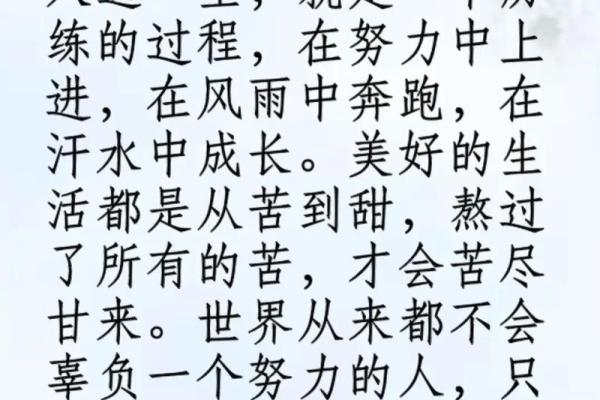 练的过程，在努力中上
进，在风雨中奔跑，在
汗水中成长。美好的生
活都是从苦到甜，熬过
了所有的苦，才会苦尽
甘来。世界从来都不会
辜负一个努力的人，只